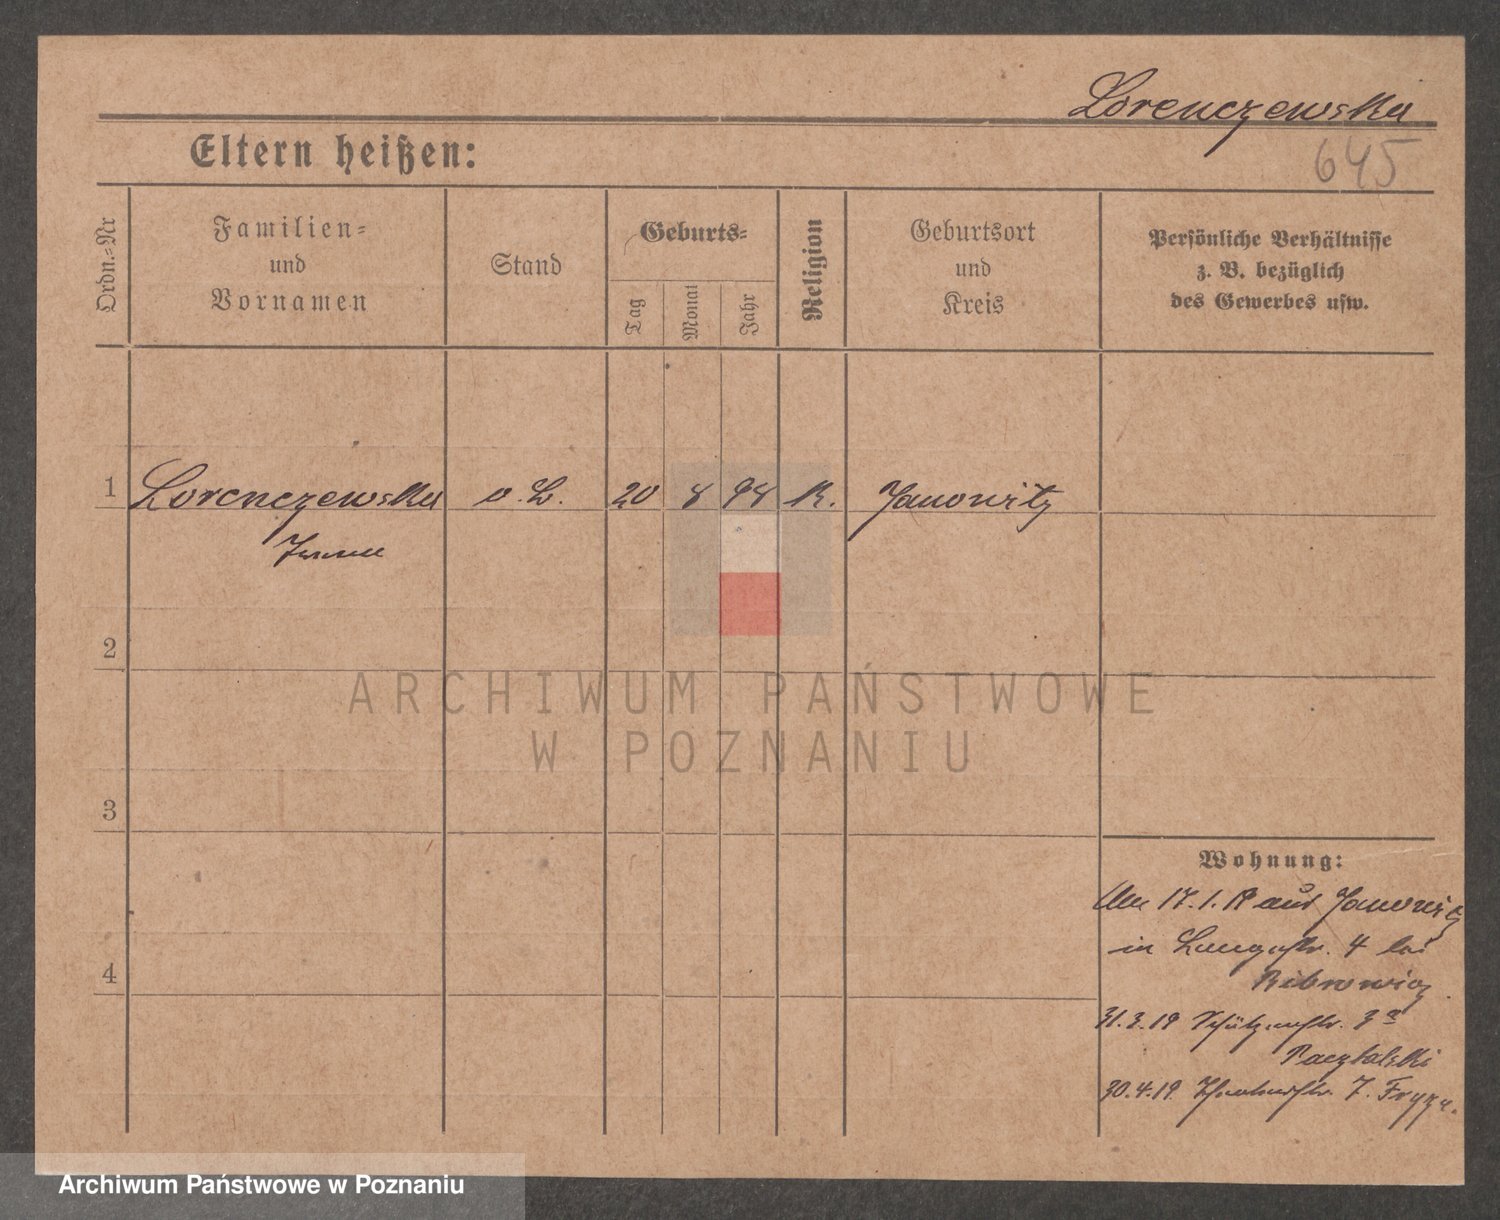 Lorenczewska
645
Eltern heißen:
Ordn.-Nr
Familien-
und
Vornamen
Stand
Geburts-
Tag
Monat
Jahr
Religion
Geburtsort
und
Kreis
Persönliche Verhältnisse
z. B. bezüglich
des Gewerbes usw.
1 Lorenczewska o. B. 20 8 98 K. Janowitz
2
ARCHIWUM PAŃSTWOWE
W POZNANIU
3
Wohnung:
Am 17.1.19 aus Janowitz
in Langestr. 4 bei
4
31.3.19 Schützenstr. 3
30.4.19 7.
Archiwum Państwowe w Poznaniu